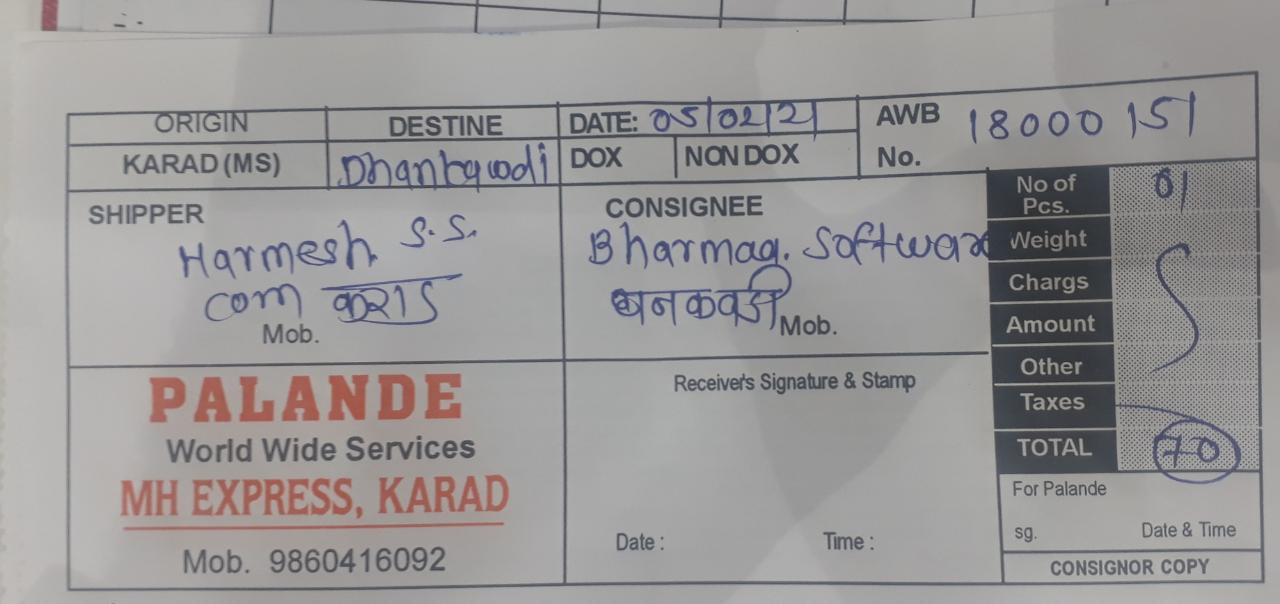 ORIGIN DESTINE DATE: 05/02/21 AWB No. 18000151
KARAD (MS) Dhankawadi DOX NON DOX
SHIPPER
Harmesh S.S.
com कराड
Mob.
CONSIGNEE
Bharmag. Software
धनकवडी
Mob.
No of Pcs. 01
Weight
Chargs
Amount
Other
Taxes
TOTAL 70
PALANDE
World Wide Services
MH EXPRESS, KARAD
Mob. 9860416092
Receiver's Signature & Stamp
Date : Time :
For Palande
sg. Date & Time
CONSIGNOR COPY